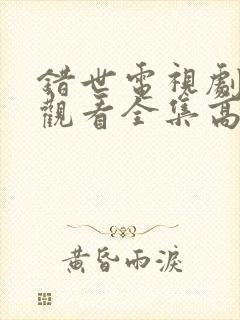 錯世電視劇
觀看全集高
黃昏雨淚